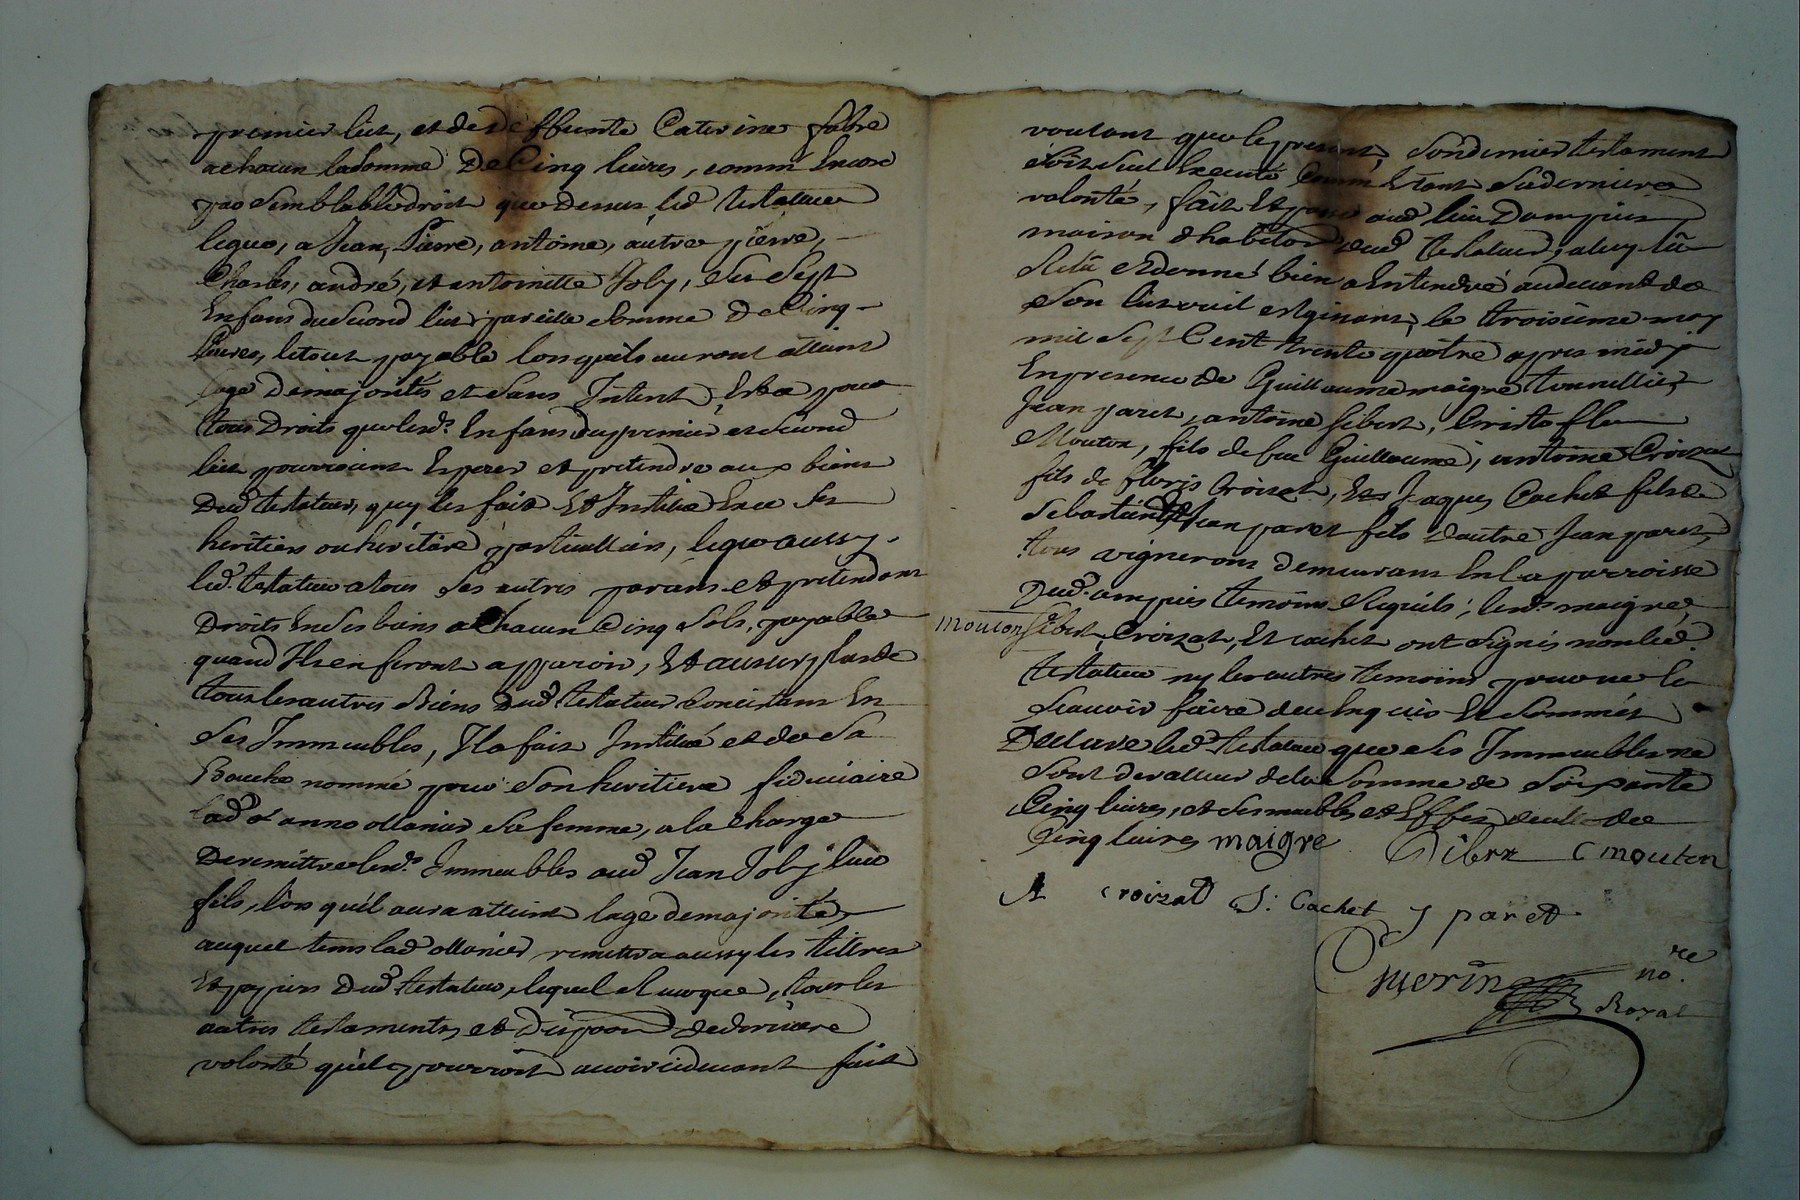 premier lict, et de deffunte Caterine fabre
achacun lasomme De Cinq livres, comm' Encore
par semblable droit que dessus led testateur
legue, a Jean, Pierre, antoine, autre pierre,
Charles, andré, et antoinette Joly, ses sept
Enfans du second lict pareille somme De Cinq
livres, letout payable lorsquils auront attaint
lage demajorités et sans Interest, Et ce pour
tous Droits que lesd. Enfans du premier et second
lict pourroient Esperer et pretendre aux biens
Dud testateur, quy les fait Et Institue En ce ses
heritiers ou heritiere particulliers, legue aussy
led. testateur atous ses autres parans et pretendans
Droits En ses biens a Chacun Cinq sols, payable
quand Ils en feront apparoir, Et au surplus de
tous les autres Biens Dud testateur Concistant En
ses Immeubles, Il a fait Institué et de sa
Bouche nommé pour son heritiere fiduciaire
lad anne ollanier sa femme, a la Charge
De remettre lesd. Immeubles aud Jean Joly leur
fils, lors quil aura atteint lage demajorité,
auquel tems lad ollanier remettra aussy les tittres
Et papiers Dud testateur, lequel revoque, tous les
autres testaments, et dispoon dederniere
volonté quil pourroit avoir cidevant fait
voulant que le present, son dernier testament
soit seul Executé Comm' Etant sa derniere
volonté, fait Et passé aud lieu Dampuis
maison dhabitaon dud testateur, a luy lû
Relû et donné bien a Entendre audevant de
son lict ou il est gisant, le troisieme may
mil sept Cent trente quatre apres midy
En presence de Guillaume maigre tonnellier,
Jean paret, antoine Gibert, Cristofle
Mouton, fils de feu Guillaume, antoine Croizat
fils de floris Croizat, Jaques Cachet fils de
sebastien Et Jean paret fils dautre Jean paret,
tous vignerons demeurans En la parroisse
Dud. ampuis temoins desquels, lesd. maigre,
mouton Gibert, Croizat, Et cachet ont signés non led.
testateur ny les autres temoins pour ne le
scauoir faire deu Enquis Et sommés
Declare led. testateur que ses Immeubles ne
sont devalleur dela somme de soixante
Cinq livres, et ses meubles et Effets de celle de
Cinq livres maigre Gibert C mouton
A croizat J: Cachet J paret
Guerin no.re
Royal